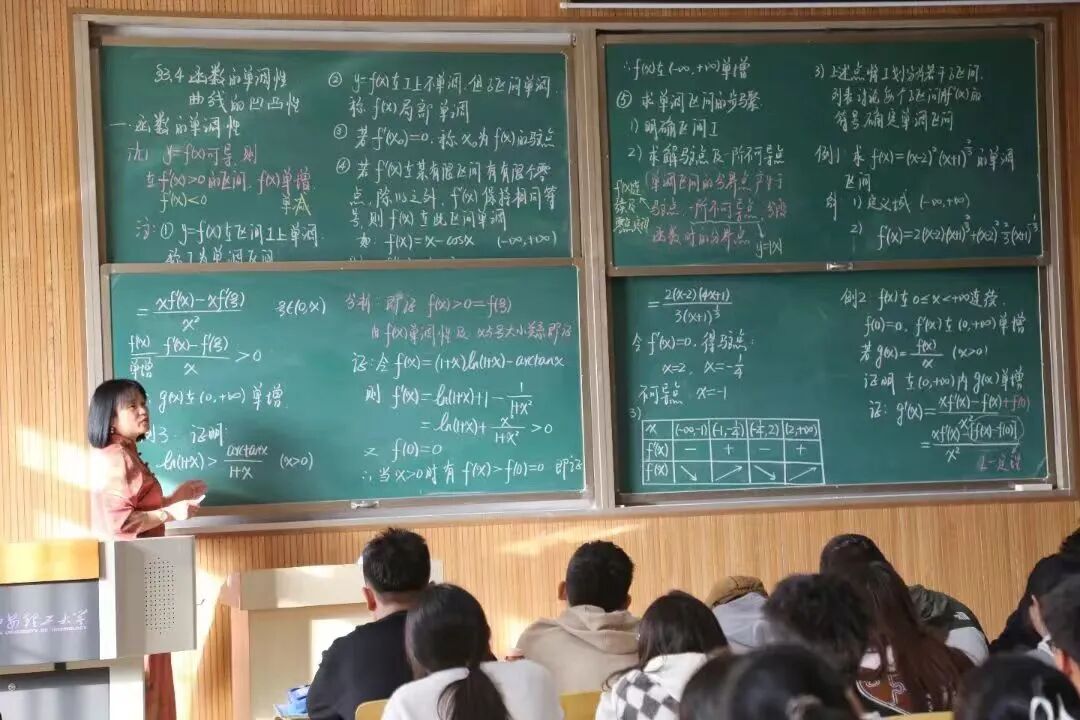 §3.4 函数的单调性
曲线的凹凸性
一.函数的单调性
y=f(x)可导,则
在f'(x)>0的区间,f(x)单增
f'(x)<0 单减
注:① y=f(x)在区间I上单调.
称I为单调区间
② y=f(x)在I上不单调,但子区间单调
称f(x)局部单调
③ 若f'(x₀)=0,称x₀为f(x)的驻点
④ 若f'(x)在某有限区间有有限个零
点,除此之外,f'(x)保持相同符
号,则f(x)在此区间单调
如: f(x)=x-cosx (-∞,+∞)
∴f(x)在(-∞,+∞)单增
⑤ 求单调区间的步骤
1)明确区间I
2)求解驻点及一阶不可导点
(单调区间的分界点产生于
驻点,一阶不可导点,分段
函数时的分界点)
y=|x|
3)上述点将I划分为若干子区间.
列表讨论每个子区间f'(x)的
符号确定单调区间
例1:求f(x)=(x-2)²(x+1)^{2/3}的单调
区间
解 1)定义域 (-∞,+∞)
2) f'(x)=2(x-2)(x+1)^{2/3}+(x-2)²·2/3(x+1)^{-1/3}
=\frac{xf'(x)-xf'(ξ)}{x²} ξ∈(0,x)
\frac{f'(x)-f'(ξ)}{x}>0
f'(x)
单增
g(x)在(0,+∞)单增.
例3 证明:
ln(1+x)>\frac{arctanx}{1+x} (x>0)
分析:即证 f(x)>0=f(0)
由f(x)单调性及x与0大小关系即证
证:令f(x)=(1+x)ln(1+x)-arctanx
则 f'(x)=ln(1+x)+1-\frac{1}{1+x²}
=ln(1+x)+\frac{x²}{1+x²}>0
又 f(0)=0
∴当x>0时有f(x)>f(0)=0 即证
=\frac{2(x-2)(4x+1)}{3(x+1)^{1/3}}
令f'(x)=0,得驻点:
x=2, x=-1/4
不可导点 x=-1
3)
x (-∞,-1) (-1,-1/4) (-1/4,2) (2,+∞)
f'(x) - + - +
f(x) ↘ ↗ ↘ ↗
例2:f(x)在0≤x<+∞连续.
f(0)=0, f'(x)在(0,+∞)单增
若g(x)=\frac{f(x)}{x} (x>0)
证明在(0,+∞)内g(x)单增
证: g'(x)=\frac{xf'(x)-f(x)+f(0)}{x²}
=\frac{xf'(x)-[f(x)-f(0)]}{x²}
理工大学